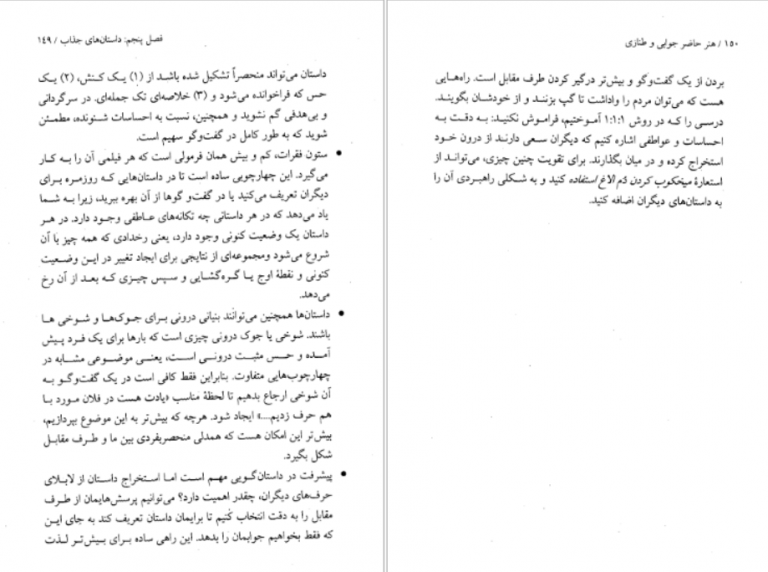 فصل پنجم: داستان‌های جذاب / ۱۴۹
داستان می‌تواند منحصراً تشکیل شده باشد از (۱) یک کنش، (۲) یک
حس که فراخوانده می‌شود و (۳) خلاصه‌ای تک جمله‌ای. در سرگردانی
و بی‌هدفی گم نشوید و همچنین، نسبت به احساسات شنونده، مطمئن
شوید که به طور کامل در گفت‌وگو سهیم است.
• ستون فقرات، کم و بیش همان فرمولی است که هر فیلمی آن را به کار
می‌گیرد. این چهارچوبی ساده است تا در داستان‌هایی که روزمره برای
دیگران تعریف می‌کنید یا در گفت‌و گوها از آن بهره ببرید، زیرا به شما
یاد می‌دهد که در هر داستانی چه تکانه‌های عاطفی وجود دارد. در هر
داستان یک وضعیت کنونی وجود دارد، یعنی رخدادی که همه چیز با آن
شروع می‌شود ومجموعه‌ای از نتایجی برای ایجاد تغییر در این وضعیت
کنونی و نقطهٔ اوج یا گره‌گشایی و سپس چیزی که بعد از آن رخ
می‌دهد.
• داستان‌ها همچنین می‌توانند بنیانی درونی برای جوک‌ها و شوخی ها
باشند. شوخی یا جوک درونی چیزی است که بارها برای یک فرد پیش
آمده و حس مثبت درونی است، یعنی موضوعی مشابه در
چهارچوب‌هایی متفاوت. بنابراین فقط کافی است در یک گفت‌وگو به
آن شوخی ارجاع بدهیم تا لحظهٔ مناسب «یادت هست در فلان مورد با
هم حرف زدیم...» ایجاد شود. هرچه که بیش‌تر به این موضوع بپردازیم،
بیش‌تر این امکان هست که همدلی منحصربفردی بین ما و طرف مقابل
شکل بگیرد.
• پیشرفت در داستان‌گویی مهم است اما استخراج داستان از لابلای
حرف‌های دیگران، چقدر اهمیت دارد؟ می‌توانیم پرسش‌هایمان از طرف
مقابل را به دقت انتخاب کنیم تا برایمان داستان تعریف کند به جای این
که فقط بخواهیم جوابمان را بدهد. این راهی ساده برای بیش‌تر لذت
۱۵۰ / هنر حاضر جوابی و طنازی
بردن از یک گفت‌وگو و بیش‌تر درگیر کردن طرف مقابل است. راه‌هایی
هست که می‌توان مردم را واداشت تا گپ بزنند و از خودشان بگویند.
درسی را که در روش ۱:۱:۱ آموختیم، فراموش نکنید: به دقت به
احساسات و عواطفی اشاره کنیم که دیگران سعی دارند از درون خود
استخراج کرده و در میان بگذارند. برای تقویت چنین چیزی، می‌توانید از
استعارهٔ میخکوب کردن دُم الاغ استفاده کنید و به شکلی راهبردی آن را
به داستان‌های دیگران اضافه کنید.